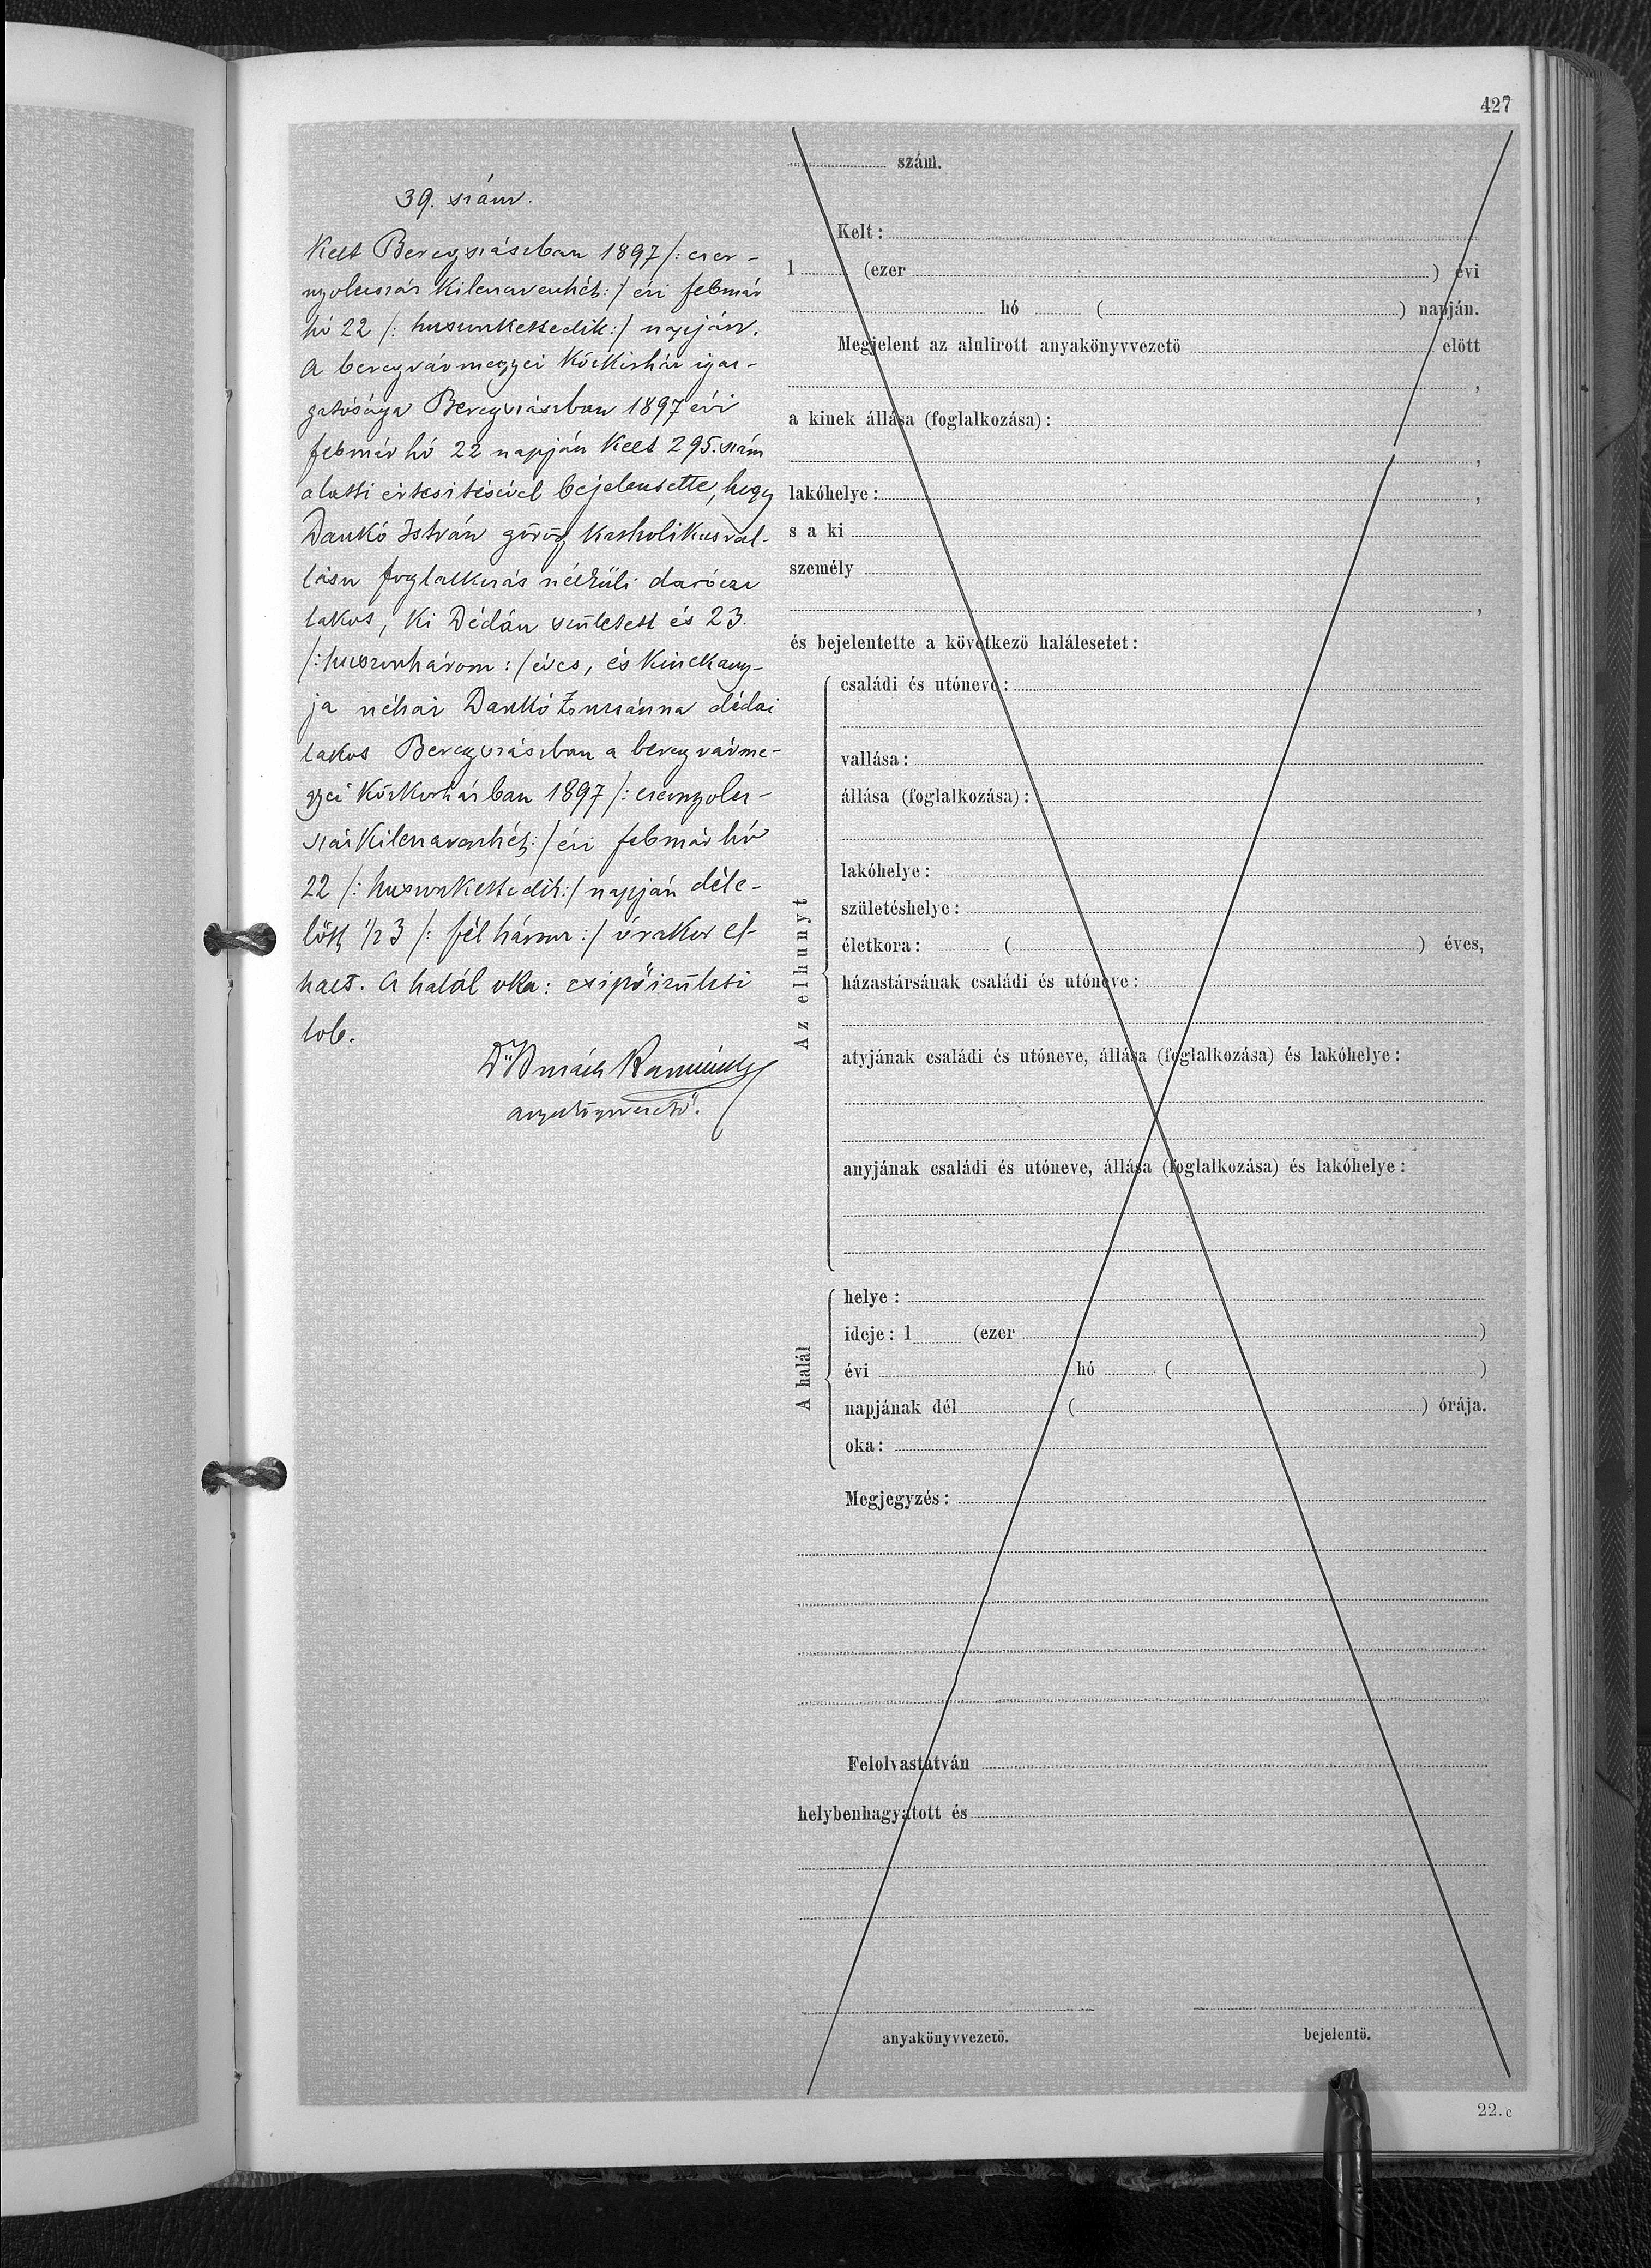 427
39. szám.
Kelt Beregszászban 1897 /: ezer-
nyolczszáz kilenczvenhét :/ évi február
hó 22 /: huszonkettedik :/ napján.
A beregvármegyei közkórház igaz-
gatósága Beregszászban 1897 évi
február hó 22 napján kelt 295. szám
alatti értesitésével bejelentette, hogy
Dankó István görög katholikus val-
lásu foglalkozás nélküli daróczi
lakos, ki Dédán született és 23.
/: huszonhárom :/ éves, és kinek any-
ja néhai Dankó Zsuzsánna dédai
lakos Beregszászban a beregvárme-
gyei közkórházban 1897 /: ezernyolcz-
száz kilenczvenhét :/ évi február hó
22 /: huszonkettedik :/ napján déle-
lőtt 1/2 3 /: fél három :/ órakor el-
halt. A halál oka: csipőizületi
lob.
Dr
anyakönyvvezető.
szám.
Kelt:
1 (ezer ) évi
hó ( ) napján.
Megjelent az alulirott anyakönyvvezető előtt
,
a kinek állása (foglalkozása):
,
lakóhelye: ,
s a ki
személy
,
és bejelentette a következő halálesetet:
Az elhunyt
családi és utóneve:
vallása:
állása (foglalkozása):
lakóhelye:
születéshelye:
életkora: ( ) éves,
házastársának családi és utóneve:
atyjának családi és utóneve, állása (foglalkozása) és lakóhelye:
anyjának családi és utóneve, állása (foglalkozása) és lakóhelye:
A halál
helye:
ideje: 1 (ezer )
évi hó ( )
napjának dél ( ) órája.
oka:
Megjegyzés:
Felolvastatván
helybenhagyatott és
anyakönyvvezető. bejelentő.
22. c